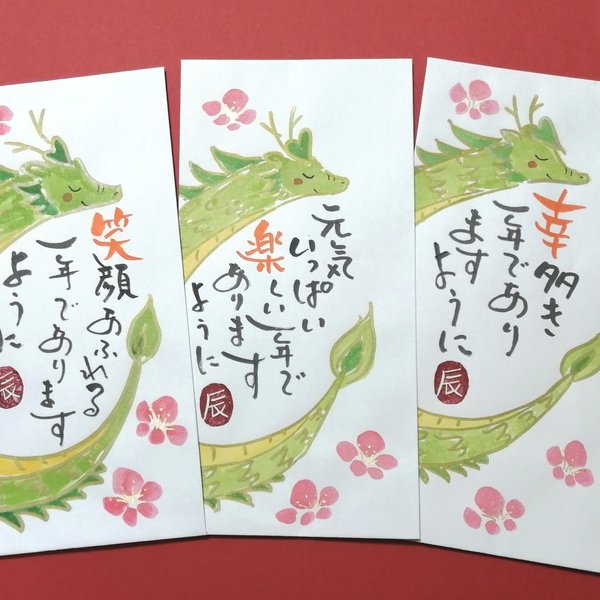 笑顔あふれる
一年であります
ように
辰
元気
いっぱい
楽しい一年で
あります
ように
辰
幸多き
一年であり
ます
ように
辰